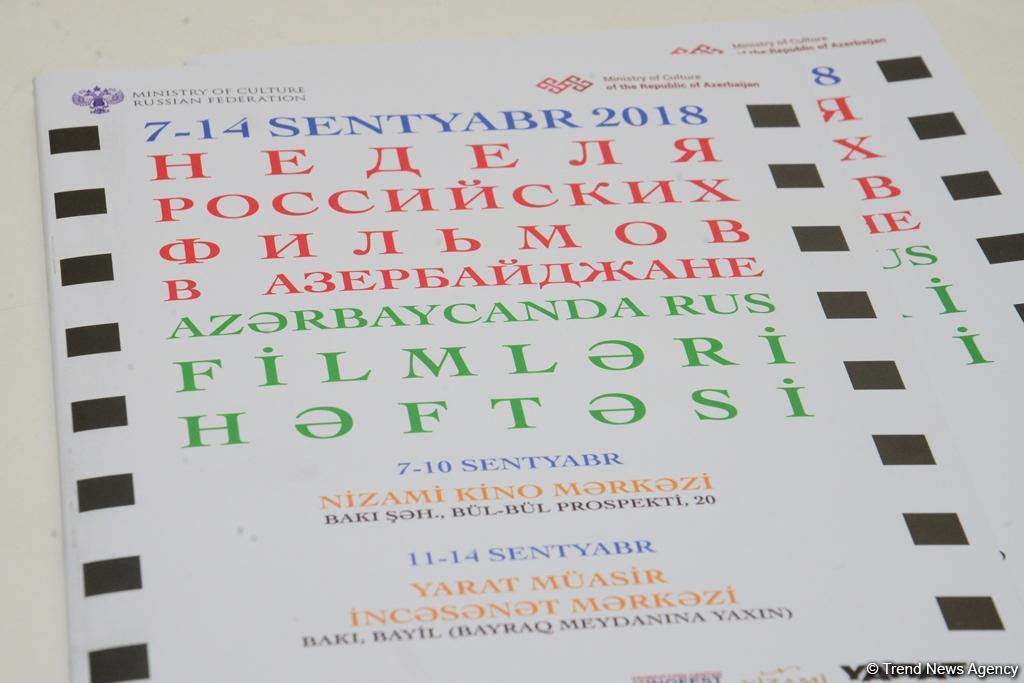 Ministry of Culture
of the Republic of Azerbaijan
MINISTRY OF CULTURE
RUSSIAN FEDERATION
Ministry of Culture
of the Republic of Azerbaijan
8
7-14 SENTYABR 2018
Я
НЕДЕЛЯ
Х
РОССИЙСКИХ
В
ФИЛЬМОВ
В АЗЕРБАЙДЖАНЕ
AZƏRBAYCANDA RUS
İ
FİLMLƏRİ
İ
HƏFTƏSİ
7-10 SENTYABR
NİZAMİ KİNO MƏRKƏZİ
BAKI ŞƏH., BÜL-BÜL PROSPEKTİ, 20
11-14 SENTYABR
YARAT MÜASİR
İNCƏSƏNƏT MƏRKƏZİ
BAKI, BAYİL (BAYRAQ MEYDANINA YAXIN)
© Trend News Agency